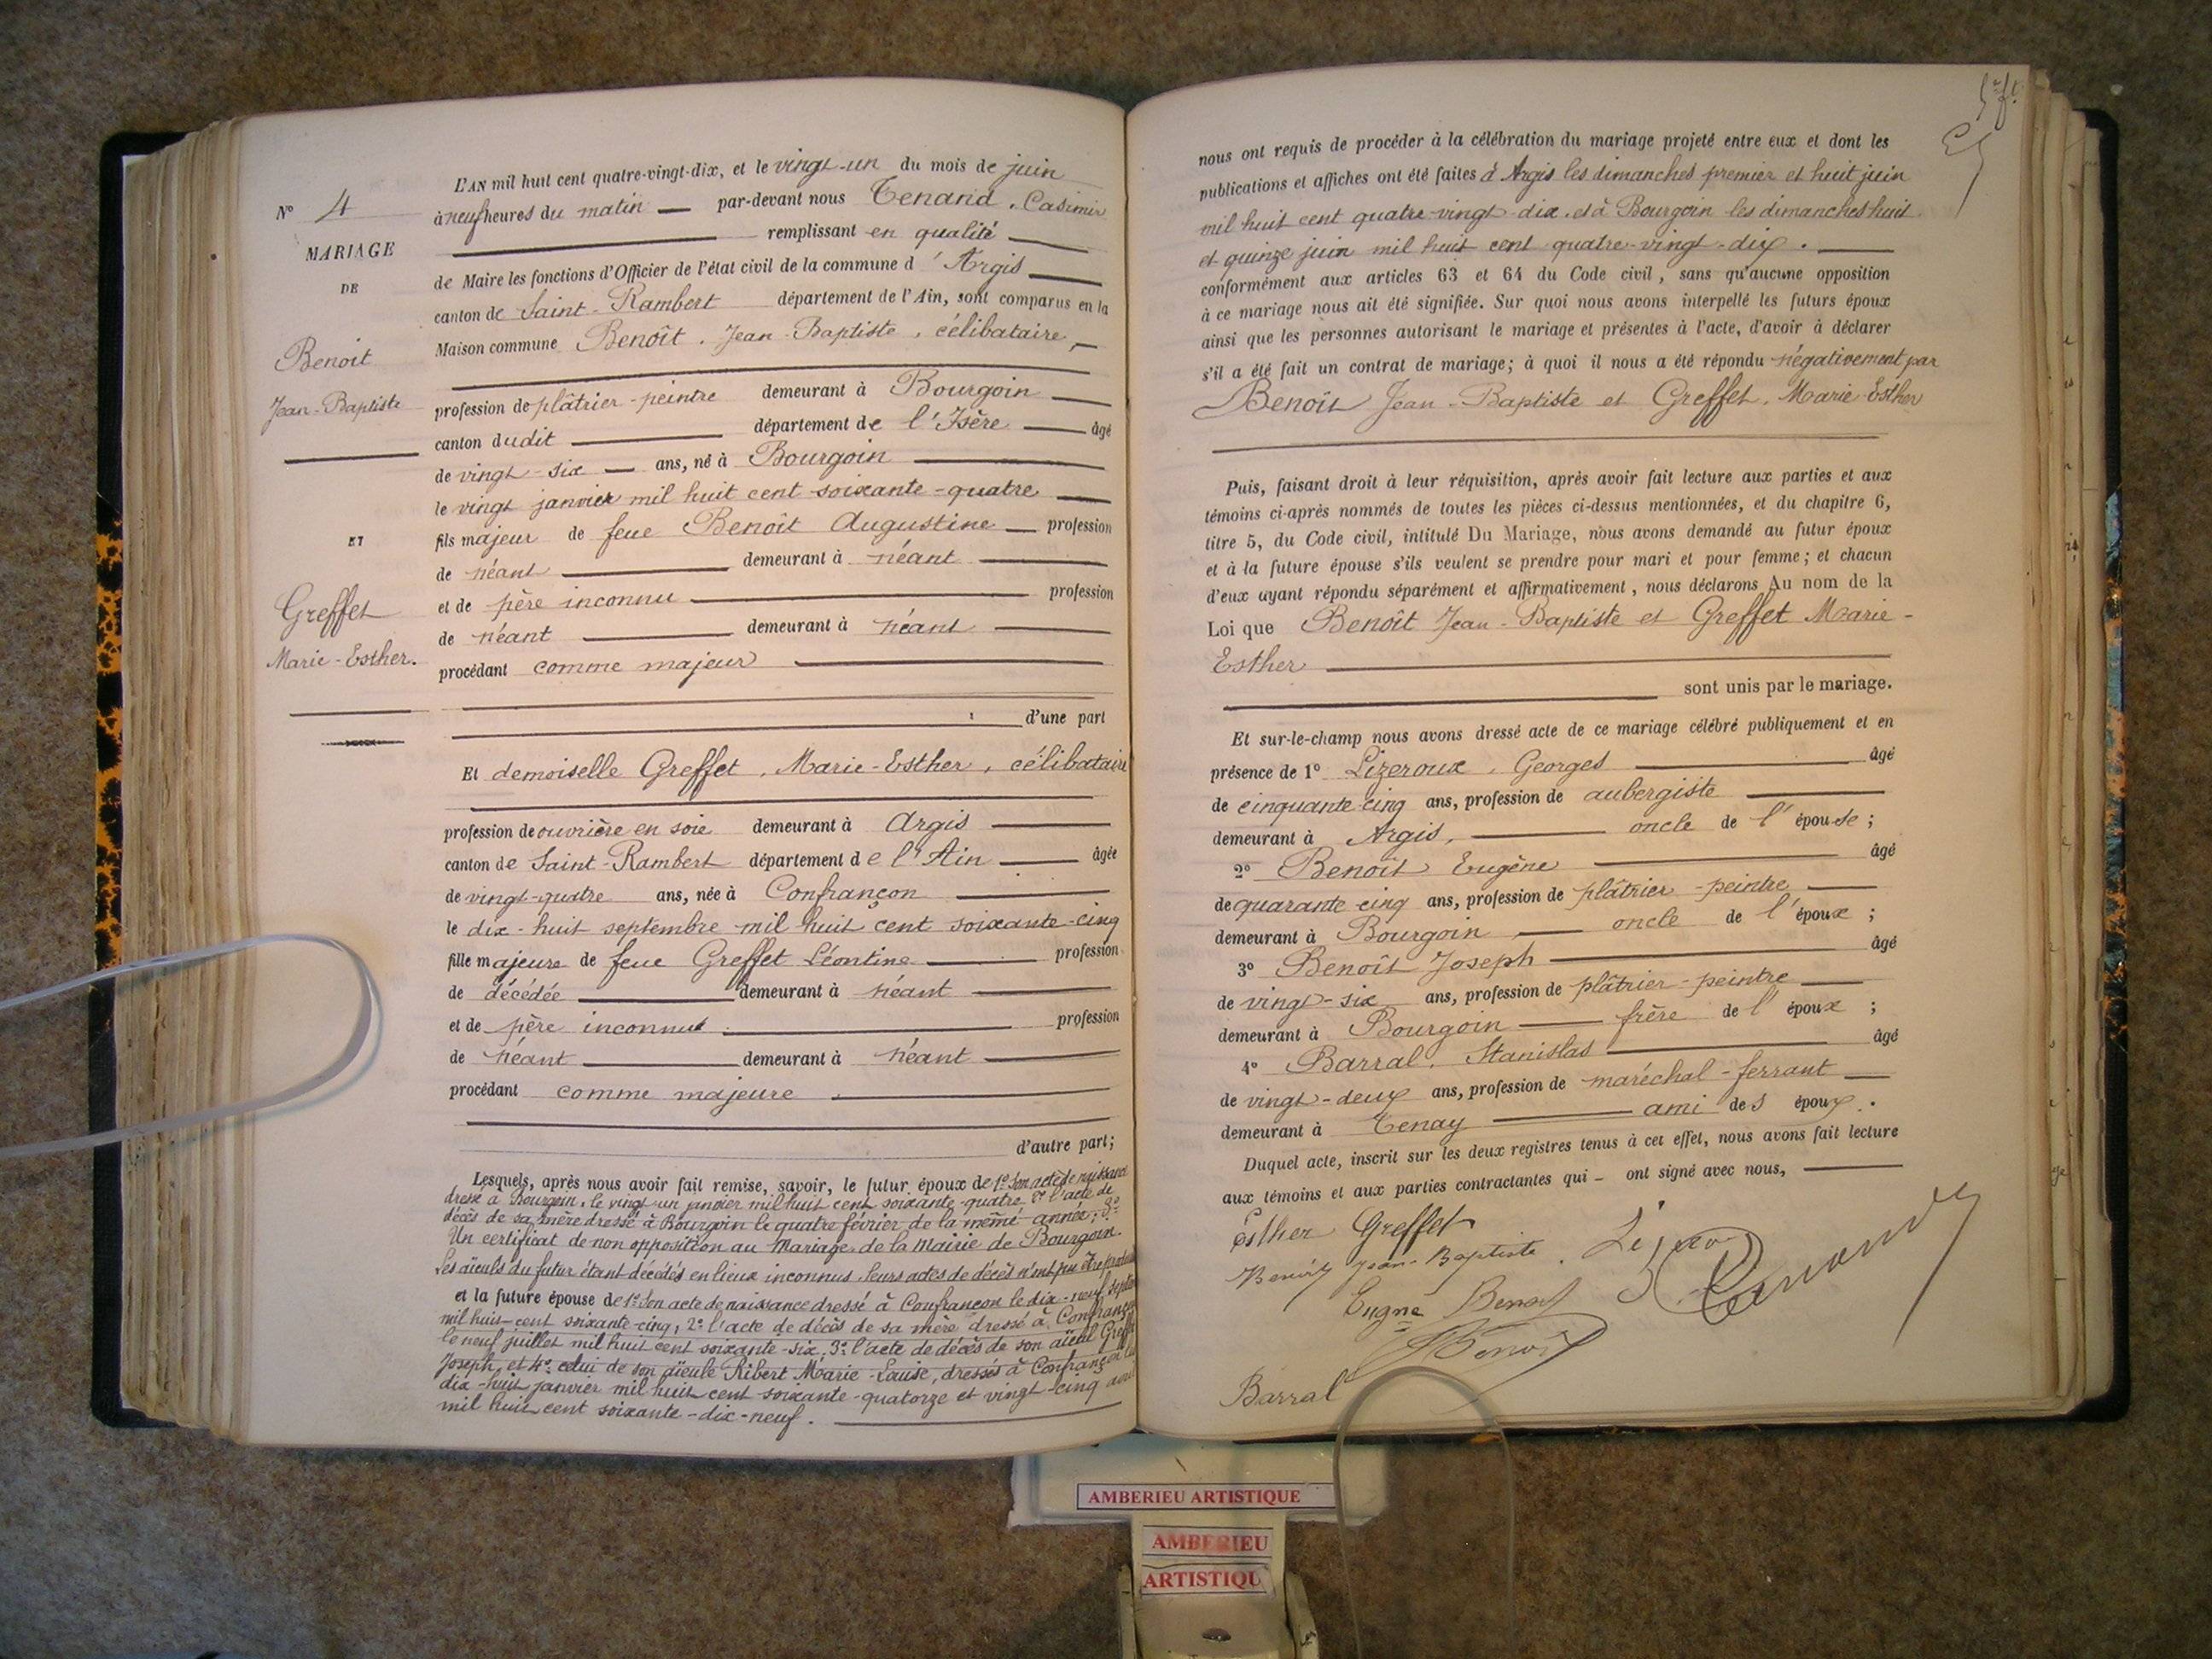 N° 4
MARIAGE
DE
Benoit
Jean-Baptiste
ET
Greffet
Marie-Esther.
L'AN mil huit cent quatre-vingt-dix, et le vingt-un du mois de juin
à neuf heures du matin par-devant nous Tenand, Casimir
remplissant en qualité
de Maire les fonctions d'Officier de l'état civil de la commune d'Argis
canton de Saint-Rambert département de l'Ain, sont comparus en la
Maison commune Benoît, Jean-Baptiste, célibataire,
profession de plâtrier-peintre demeurant à Bourgoin
canton dudit département de l'Isère âgé
de vingt-six ans, né à Bourgoin
le vingt janvier mil huit cent soixante-quatre
fils majeur de feue Benoît Augustine profession
de néant demeurant à néant
et de père inconnu profession
de néant demeurant à néant
procédant comme majeur
d'une part
Et demoiselle Greffet, Marie-Esther, célibataire
profession de ouvrière en soie demeurant à Argis
canton de Saint-Rambert département de l'Ain âgée
de vingt-quatre ans, née à Confrançon
le dix-huit septembre mil huit cent soixante-cinq
fille majeure de feue Greffet Léontine profession
de décédée demeurant à néant
et de père inconnu profession
de néant demeurant à néant
procédant comme majeure
d'autre part;
Lesquels, après nous avoir fait remise, savoir, le futur époux de 1° Son acte de naissance
dressé à Bourgoin, le vingt-un janvier mil huit cent soixante-quatre, 2° l'acte de
décès de sa mère dressé à Bourgoin le quatre février de la même année; 3°
Un certificat de non opposition au Mariage de la Mairie de Bourgoin.
Les aïeuls du futur étant décédés en lieux inconnus leurs actes de décès n'ont pu être produits
et la future épouse de 1° Son acte de naissance dressé à Confrançon le dix-neuf septembre
mil huit cent soixante-cinq, 2° l'acte de décès de sa mère dressé à Confrançon
le neuf juillet mil huit cent soixante-six, 3° l'acte de décès de son aïeul Greffet
Joseph, et 4° celui de son aïeule Ribert Marie-Louise, dressés à Confrançon les
dix-huit janvier mil huit cent soixante-quatorze et vingt-cinq
mil huit cent soixante-dix-neuf.
nous ont requis de procéder à la célébration du mariage projeté entre eux et dont les
publications et affiches ont été faites à Argis les dimanches premier et huit juin
mil huit cent quatre-vingt-dix, et à Bourgoin les dimanches huit
et quinze juin mil huit cent quatre-vingt-dix.
conformément aux articles 63 et 64 du Code civil, sans qu'aucune opposition
à ce mariage nous ait été signifiée. Sur quoi nous avons interpellé les futurs époux
ainsi que les personnes autorisant le mariage et présentes à l'acte, d'avoir à déclarer
s'il a été fait un contrat de mariage; à quoi il nous a été répondu négativement par
Benoît Jean-Baptiste et Greffet, Marie-Esther
Puis, faisant droit à leur réquisition, après avoir fait lecture aux parties et aux
témoins ci-après nommés de toutes les pièces ci-dessus mentionnées, et du chapitre 6,
titre 5, du Code civil, intitulé Du Mariage, nous avons demandé au futur époux
et à la future épouse s'ils veulent se prendre pour mari et pour femme; et chacun
d'eux ayant répondu séparément et affirmativement, nous déclarons Au nom de la
Loi que Benoît Jean-Baptiste et Greffet Marie-
Esther
sont unis par le mariage.
Et sur-le-champ nous avons dressé acte de ce mariage célébré publiquement et en
présence de 1° Lizeroux, Georges âgé
de cinquante-cinq ans, profession de aubergiste
demeurant à Argis, oncle de l'épouse;
2° Benoît Eugène âgé
de quarante-cinq ans, profession de plâtrier-peintre
demeurant à Bourgoin, oncle de l'époux;
3° Benoît Joseph âgé
de vingt-six ans, profession de plâtrier-peintre
demeurant à Bourgoin frère de l'époux;
4° Barral, Stanislas âgé
de vingt-deux ans, profession de maréchal-ferrant
demeurant à Tenay ami des époux.
Duquel acte, inscrit sur les deux registres tenus à cet effet, nous avons fait lecture
aux témoins et aux parties contractantes qui ont signé avec nous,
Esther Greffet
Benoît Jean-Baptiste
Eugne Benoit
Benoit
Barral
AMBERIEU ARTISTIQUE
AMBERIEU
ARTISTIQU